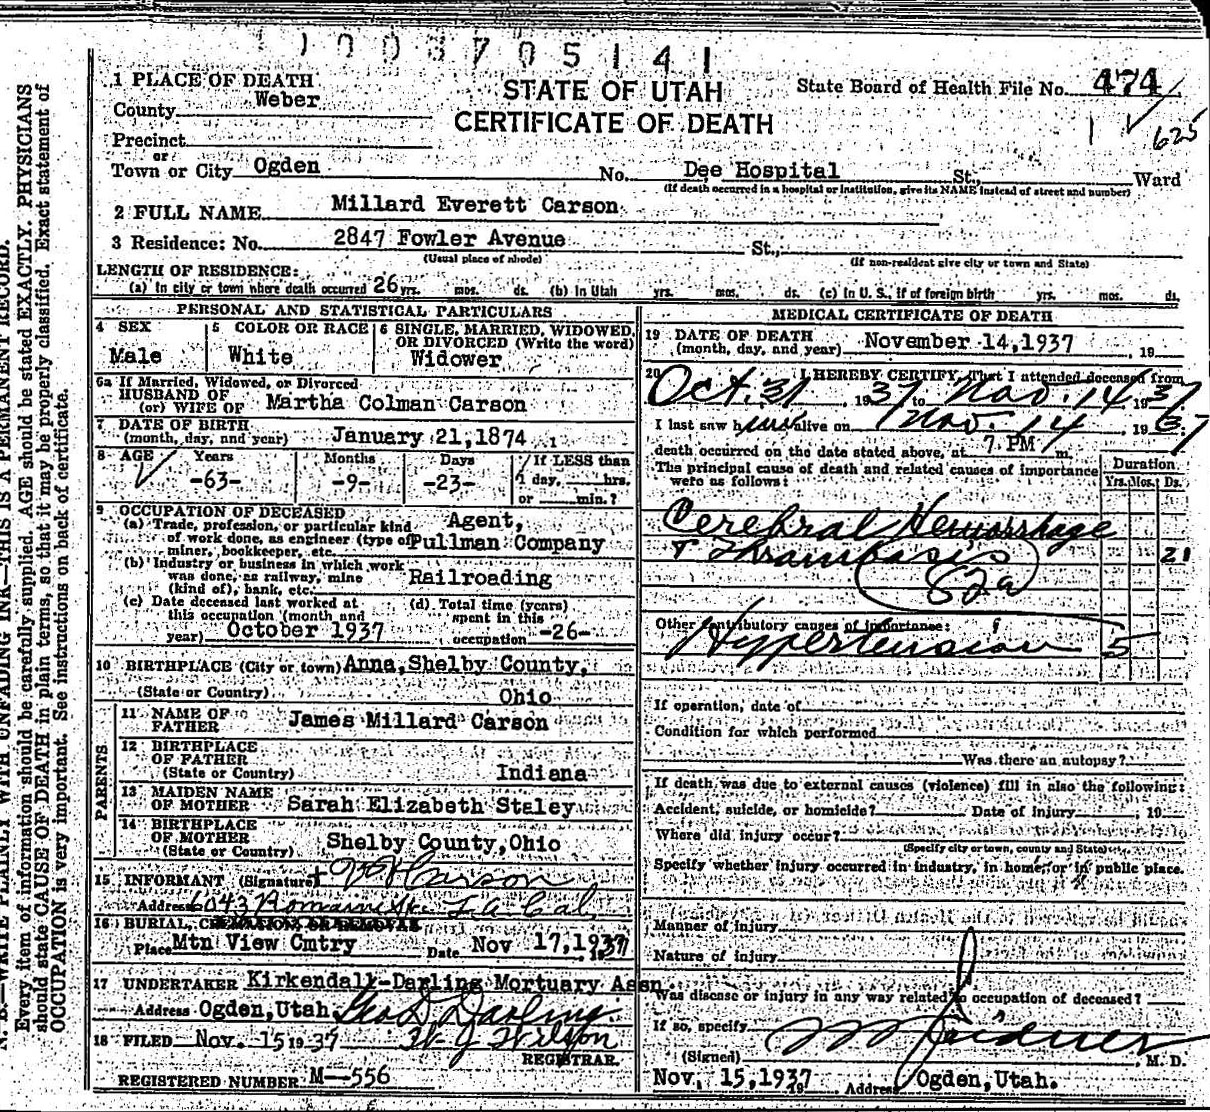 1003705141
1 PLACE OF DEATH
County Weber
STATE OF UTAH
CERTIFICATE OF DEATH
State Board of Health File No. 474
625
Precinct
or
Town or City Ogden No. Dee Hospital St., Ward
(If death occurred in a hospital or institution, give its NAME instead of street and number)
2 FULL NAME Millard Everett Carson
3 Residence: No. 2847 Fowler Avenue St.,
(Usual place of abode) (If non-resident give city or town and State)
LENGTH OF RESIDENCE:
(a) In city or town where death occurred 26 yrs. mos. ds. (b) In Utah yrs. mos. ds. (c) In U. S., if of foreign birth yrs. mos. ds.
PERSONAL AND STATISTICAL PARTICULARS
4 SEX
Male
5 COLOR OR RACE
White
6 SINGLE, MARRIED, WIDOWED,
OR DIVORCED (Write the word)
Widower
6a If Married, Widowed, or Divorced
HUSBAND OF
(or) WIFE OF Martha Colman Carson
7 DATE OF BIRTH
(month, day, and year) January 21,1874
8 AGE Years Months Days If LESS than
-63- -9- -23- 1 day, hrs.
or min.?
9 OCCUPATION OF DECEASED
(a) Trade, profession, or particular kind
of work done, as engineer (type of
miner, bookkeeper, etc.
Agent,
Pullman Company
(b) Industry or business in which work
was done, as railway, mine
(kind of), bank, etc. Railroading
(c) Date deceased last worked at
this occupation (month and
year) October 1937
(d) Total time (years)
spent in this
occupation -26-
10 BIRTHPLACE (City or town) Anna, Shelby County,
(State or Country) Ohio
PARENTS
11 NAME OF
FATHER James Millard Carson
12 BIRTHPLACE
OF FATHER
(State or Country) Indiana
13 MAIDEN NAME
OF MOTHER Sarah Elizabeth Staley
14 BIRTHPLACE
OF MOTHER
(State or Country) Shelby County, Ohio
15 INFORMANT (Signature) Carson
Address 6043 Romaine St. L.A. Cal.
16 BURIAL, CREMATION OR REMOVAL
Place Mtn View Cmtry Date Nov 17,1937
17 UNDERTAKER Kirkendall-Darling Mortuary Assn.
Address Ogden, Utah. Geo D Darling
18 FILED Nov. 15 1937 W J Wilson
REGISTRAR.
REGISTERED NUMBER M-556
MEDICAL CERTIFICATE OF DEATH
19 DATE OF DEATH
(month, day, and year) November 14,1937, 19
20 I HEREBY CERTIFY, That I attended deceased from
Oct. 31, 1937 to Nov. 14 1937
I last saw him alive on Nov. 14, 1937
death occurred on the date stated above, at 7 PM m.
The principal cause of death and related causes of importance
were as follows:
Duration
Yrs. Mos. Ds.
Cerebral Hemorrhage
+ Thrombosis 21
82a
Other contributory causes of importance:
Hypertension 5
If operation, date of
Condition for which performed
Was there an autopsy?
If death was due to external causes (violence) fill in also the following:
Accident, suicide, or homicide? Date of injury , 19
Where did injury occur?
(Specify city or town, county and State)
Specify whether injury occurred in industry, in home, or in public place.
Manner of injury
Nature of injury
Was disease or injury in any way related to occupation of deceased?
If so, specify
(Signed) M. D.
Nov. 15,1937 19 Address Ogden, Utah.
N. B.—WRITE PLAINLY WITH UNFADING INK—THIS IS A PERMANENT RECORD.
Every item of information should be carefully supplied. AGE should be stated EXACTLY. PHYSICIANS
should state CAUSE OF DEATH in plain terms, so that it may be properly classified. Exact statement of
OCCUPATION is very important. See instructions on back of certificate.